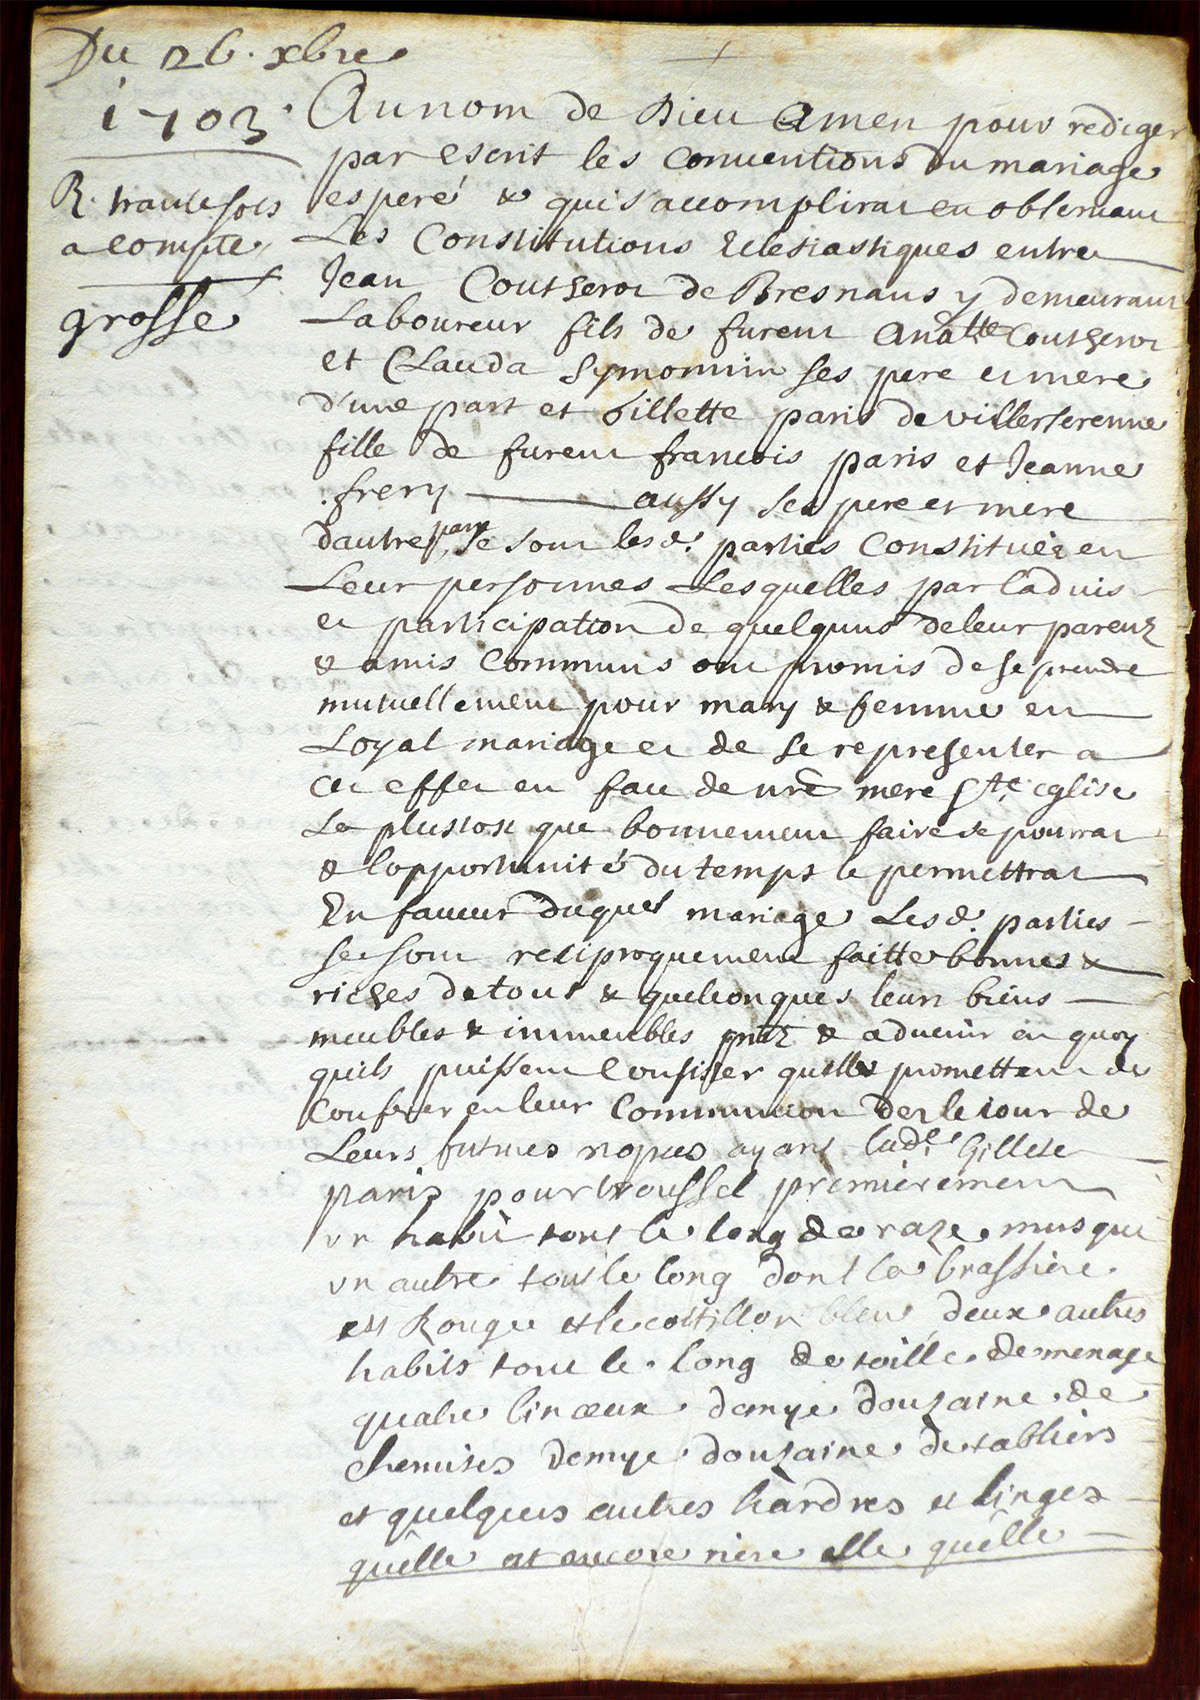 Du 26. xbre
1703.
R. trante sols
a compte
grosse
Au nom de Dieu Amen pour rediger
par escrit les Conventions du mariage
esperé & qui s'accomplirat en observant
Les Constitutions Eclesiastiques entre
Jean Coutherot de Bresnans y demeurant
Laboureur fils de furent Anatlle Coutherot
et Clauda Symonnin ses pere et mere
d'une part et Gillette paris de villersrenne
fille de furent francois paris et Jeanne
frery aussy ses pere et mere
dautre part, se sont lesd. parties Constituées en
Leur personnes Lesquelles par l'advis
et participation de quelquns de leur parentz
& amis Communs ont promis de se prendre
mutuellement pour mary & femme en
Loyal mariage et de se representer a
cet effet en face de nre mere Ste eglise
Le plustost que bonnement faire se pourrat
& l'opportunité du temps le permettrat
En faveur duquel mariage Lesd. parties
se sont reciproquement faitte bonnes &
riches de tous & quelconques leurs biens
meubles & immeubles pntz & advenir en quoy
quils puissent Consister quelles promettent de
Conferer en leur Communion dez le jour de
Leurs futures nopces ayant lad. Gillete
paris pour troussel premierement
un habit tout le long de raze musque
un autre tout le long dont la brassiere
est Rouge et le cottillon bleu, deux autres
habits tout le long de toille de menage
quatre linceux demye douzaine de
chemises demye douzaine de tabliers
et quelques autres hardres et linges
quelle at encore riere elle quelle